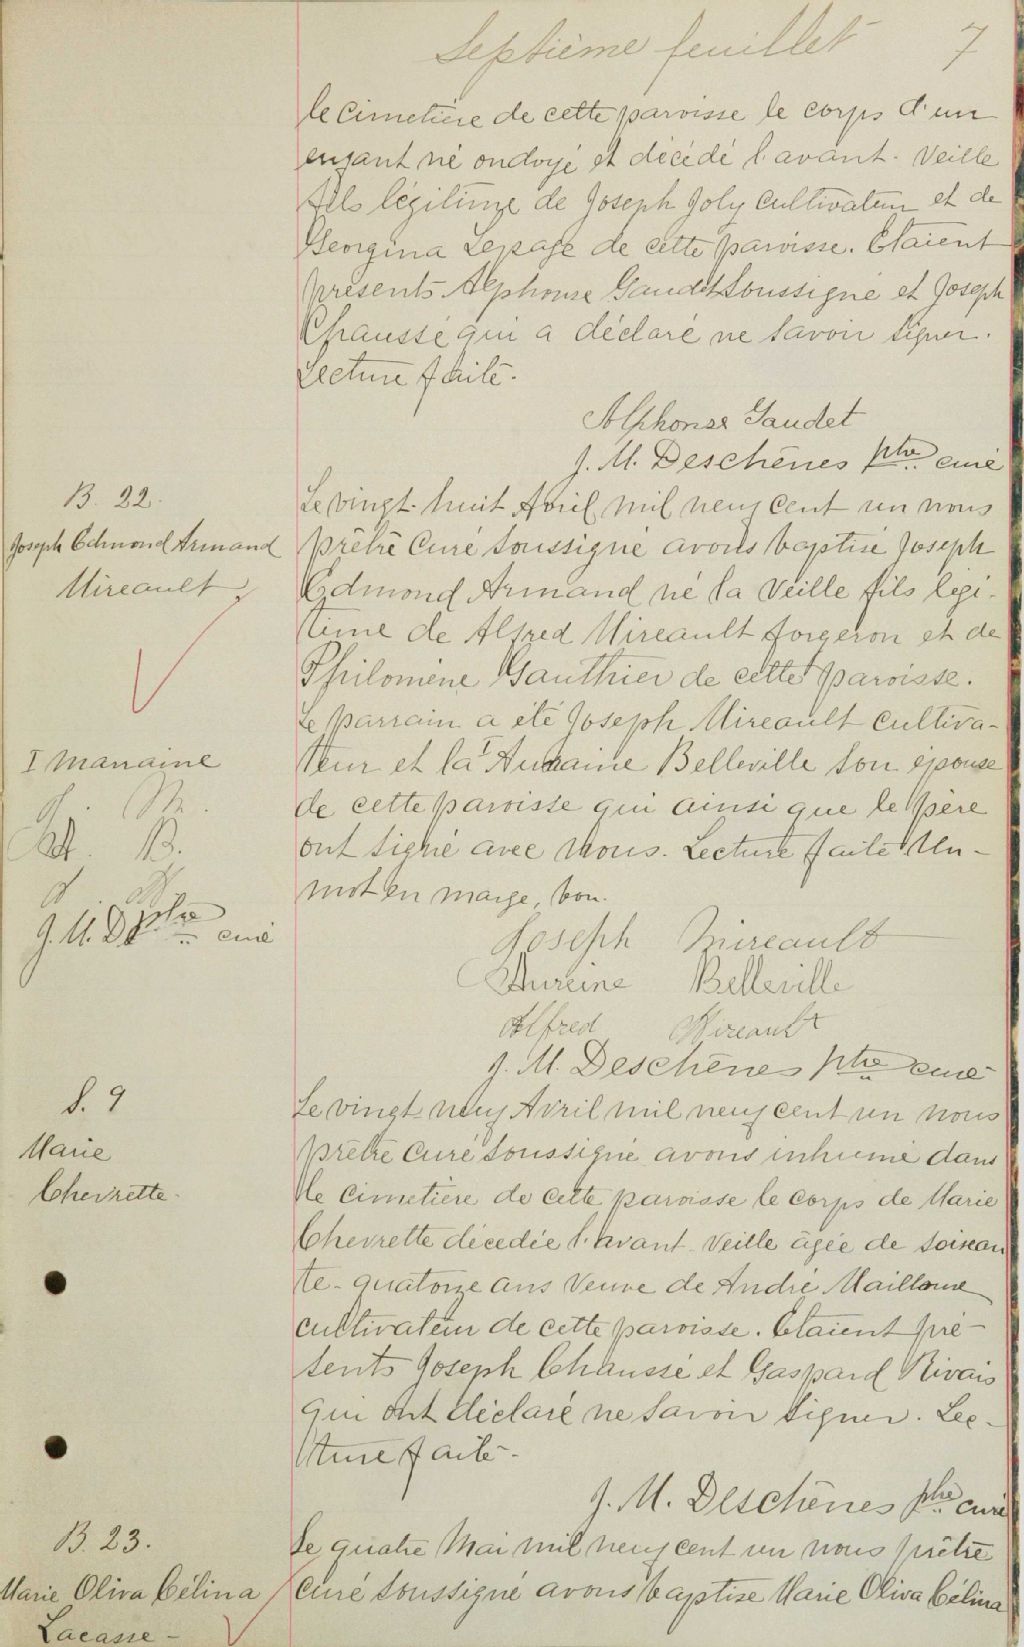 Septième feuillet 7
le cimetière de cette paroisse le corps d'un
enfant né ondoyé et décédé l'avant-veille
fils légitime de Joseph Joly cultivateur et de
Georgina Lepage de cette paroisse. Etaient
présents Alphonse Gaudet soussigné et Joseph
Chaussé qui a déclaré ne savoir signer.
Lecture faite.
Alphonse Gaudet
J. M. Deschênes ptre curé
B. 22.
Joseph Edmond Armand
Mireault
Le vingt-huit Avril mil neuf cent un nous
prêtre curé soussigné avons baptisé Joseph
Edmond Armand né la veille fils légi-
time de Alfred Mireault forgeron et de
Philomène Gauthier de cette paroisse.
Le parrain a été Joseph Mireault cultiva-
teur et la I Auréaine Belleville son épouse
de cette paroisse qui ainsi que le père
ont signé avec nous. Lecture faite Un-
mot en marge, bon.
I marraine
J. M.
A. B.
A. M.
J. M. D. ptre curé
Joseph Mireault
Aureine Belleville
Alfred Mireault
J. M. Deschênes ptre curé
S. 9
Marie
Chevrette.
Le vingt neuf Avril mil neuf cent un nous
prêtre curé soussigné avons inhumé dans
le cimetière de cette paroisse le corps de Marie
Chevrette décédée l'avant-veille âgée de soixan
te-quatorze ans veuve de André Mailloux
cultivateur de cette paroisse. Etaient pré-
sents Joseph Chaussé et Gaspard Rivais
qui ont déclaré ne savoir signer. Lec-
ture faite.
J. M. Deschênes ptre curé
B. 23.
Marie Oliva Célina
Lacasse-
Le quatre Mai mil neuf cent un nous prêtre
curé soussigné avons baptisé Marie Oliva Célina